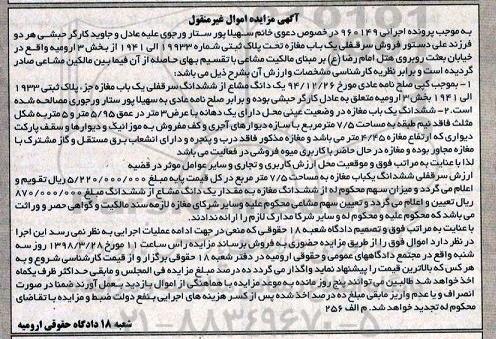 آگهی مزایده اموال غیرمنقول
به موجب پرونده اجرائی ۹۶۰۱۴۹ در خصوص دعوی خانم سهیلا پور ستار ورجوی علیه عادل و جاوید کارگر حبشی هر دو
فرزند علی دستور فروش سرقفلی یک باب مغازه تحت پلاک ثبتی شماره ۱۹۹۳۳ الی ۱۹۴۱ از بخش ۳ ارومیه واقع در
خیابان بعثت روبروی هتل امام رضا (ع) بر مبنای مالکیت مشاعی با تقسیم بهای حاصله از آن فیما بین مالکین مشاعی صادر
گردیده است و برابر نظریه کارشناسی مشخصات و ارزش آن بشرح ذیل می باشد:
۱- بموجب کپی صلح نامه عادی مورخ ۹۴/۱۲/۲۶ یک دانگ مشاع از ششدانگ سرقفلی یک باب مغازه جزء پلاک ثبتی ۱۹۳۳
الی ۱۹۴۱ بخش ۳ ارومیه متعلق به عادل کارگر حبشی بوده و برابر صلح نامه عادی به سهیلا پور ستار ورجوری مصالحه شده
است. ۲- ششدانگ یک باب مغازه در وضعیت عینی محل دارای یک دهانه با عرض ۳ متر در عمق ۵/۹۵ متر و ۵ متر به شکل
مثلث فاقد نیم طبقه به مساحت ۷/۵ متر مربع با سازه دیوارهای آجری و کف مفروش به موزائیک و دیوارها و سقف پارکت
دیواری که ارتفاع مغازه ۲/۴۵ متر می باشد و مغازه مذکور فاقد درب و پنجره و دارای انشعاب برق مستقل و گاز مشترک با
مغازه مجاور بوده و مغازه در حال حاضر با کاربری میوه فروشی در فعالیت می باشد
لذا با عنایت به مراتب فوق و موقعیت محل ارزش کاربری و تجاری و سایر عوامل موثر در قضیه
ارزش سرقفلی ششدانگ یکباب مغازه به مساحت ۷/۵ متر مربع در کل قیمت پایه مبلغ ۵/۲۲۰/۰۰۰/۰۰۰ ریال تقویم و
اعلام می گردد و میزان سهم محکوم له از ششدانگ مغازه به مقدار یک دانگ مشاع از ششدانگ مبلغ ۸۷۰/۰۰۰/۰۰۰
ریال تعیین و اعلام می گردد و تعیین سهم مشاعی محکوم علیه و سایر شرکای مغازه لازمه سند مالکیت و گواهی حصر و وراثت
می باشد که محکوم علیه و محکوم له و سایر شرکا مدارک لازم را ارائه ندادند.
با عنایت به مراتب فوق و تصمیم دادگاه شعبه ۱۸ حقوقی که منعی در جهت ادامه عملیات اجرایی به نظر نمی رسد این اجرا
در نظر دارد اموال فوق را از طریق مزایده حضوری به فروش برساند مزایده راس ساعت ۱۱ مورخ ۱۳۹۸/۳/۲۸ روز سه
شنبه واقع در مجتمع دادگاههای عمومی و حقوقی ارومیه در دفتر شعبه ۱۸ حقوقی برگزار و از قیمت کارشناسی شروع و به
هر کس که بالاترین قیمت را پیشنهاد نماید واگذار می گردد ده درصد مبلغ مزایده فی المجلس و مابقی حداکثر ظرف یکماه
اخذ خواهد شد طالبین می توانند پنج روز مانده به موعد مزایده با هماهنگی از اموال بازدید بعمل آورند ضمنا در صورت
انصراف و یا عدم واریز مابقی مبلغ ده درصد اخذ شده پس از کسر هزینه های اجرایی به نفع دولت ضبط و مزایده با تقاضای
محکوم له تجدید خواهد شد. م الف ۲۵۶
شعبه ۱۸ دادگاه حقوقی ارومیه
۰۲۱-۸۸۳۴۹۶۷۰-۵